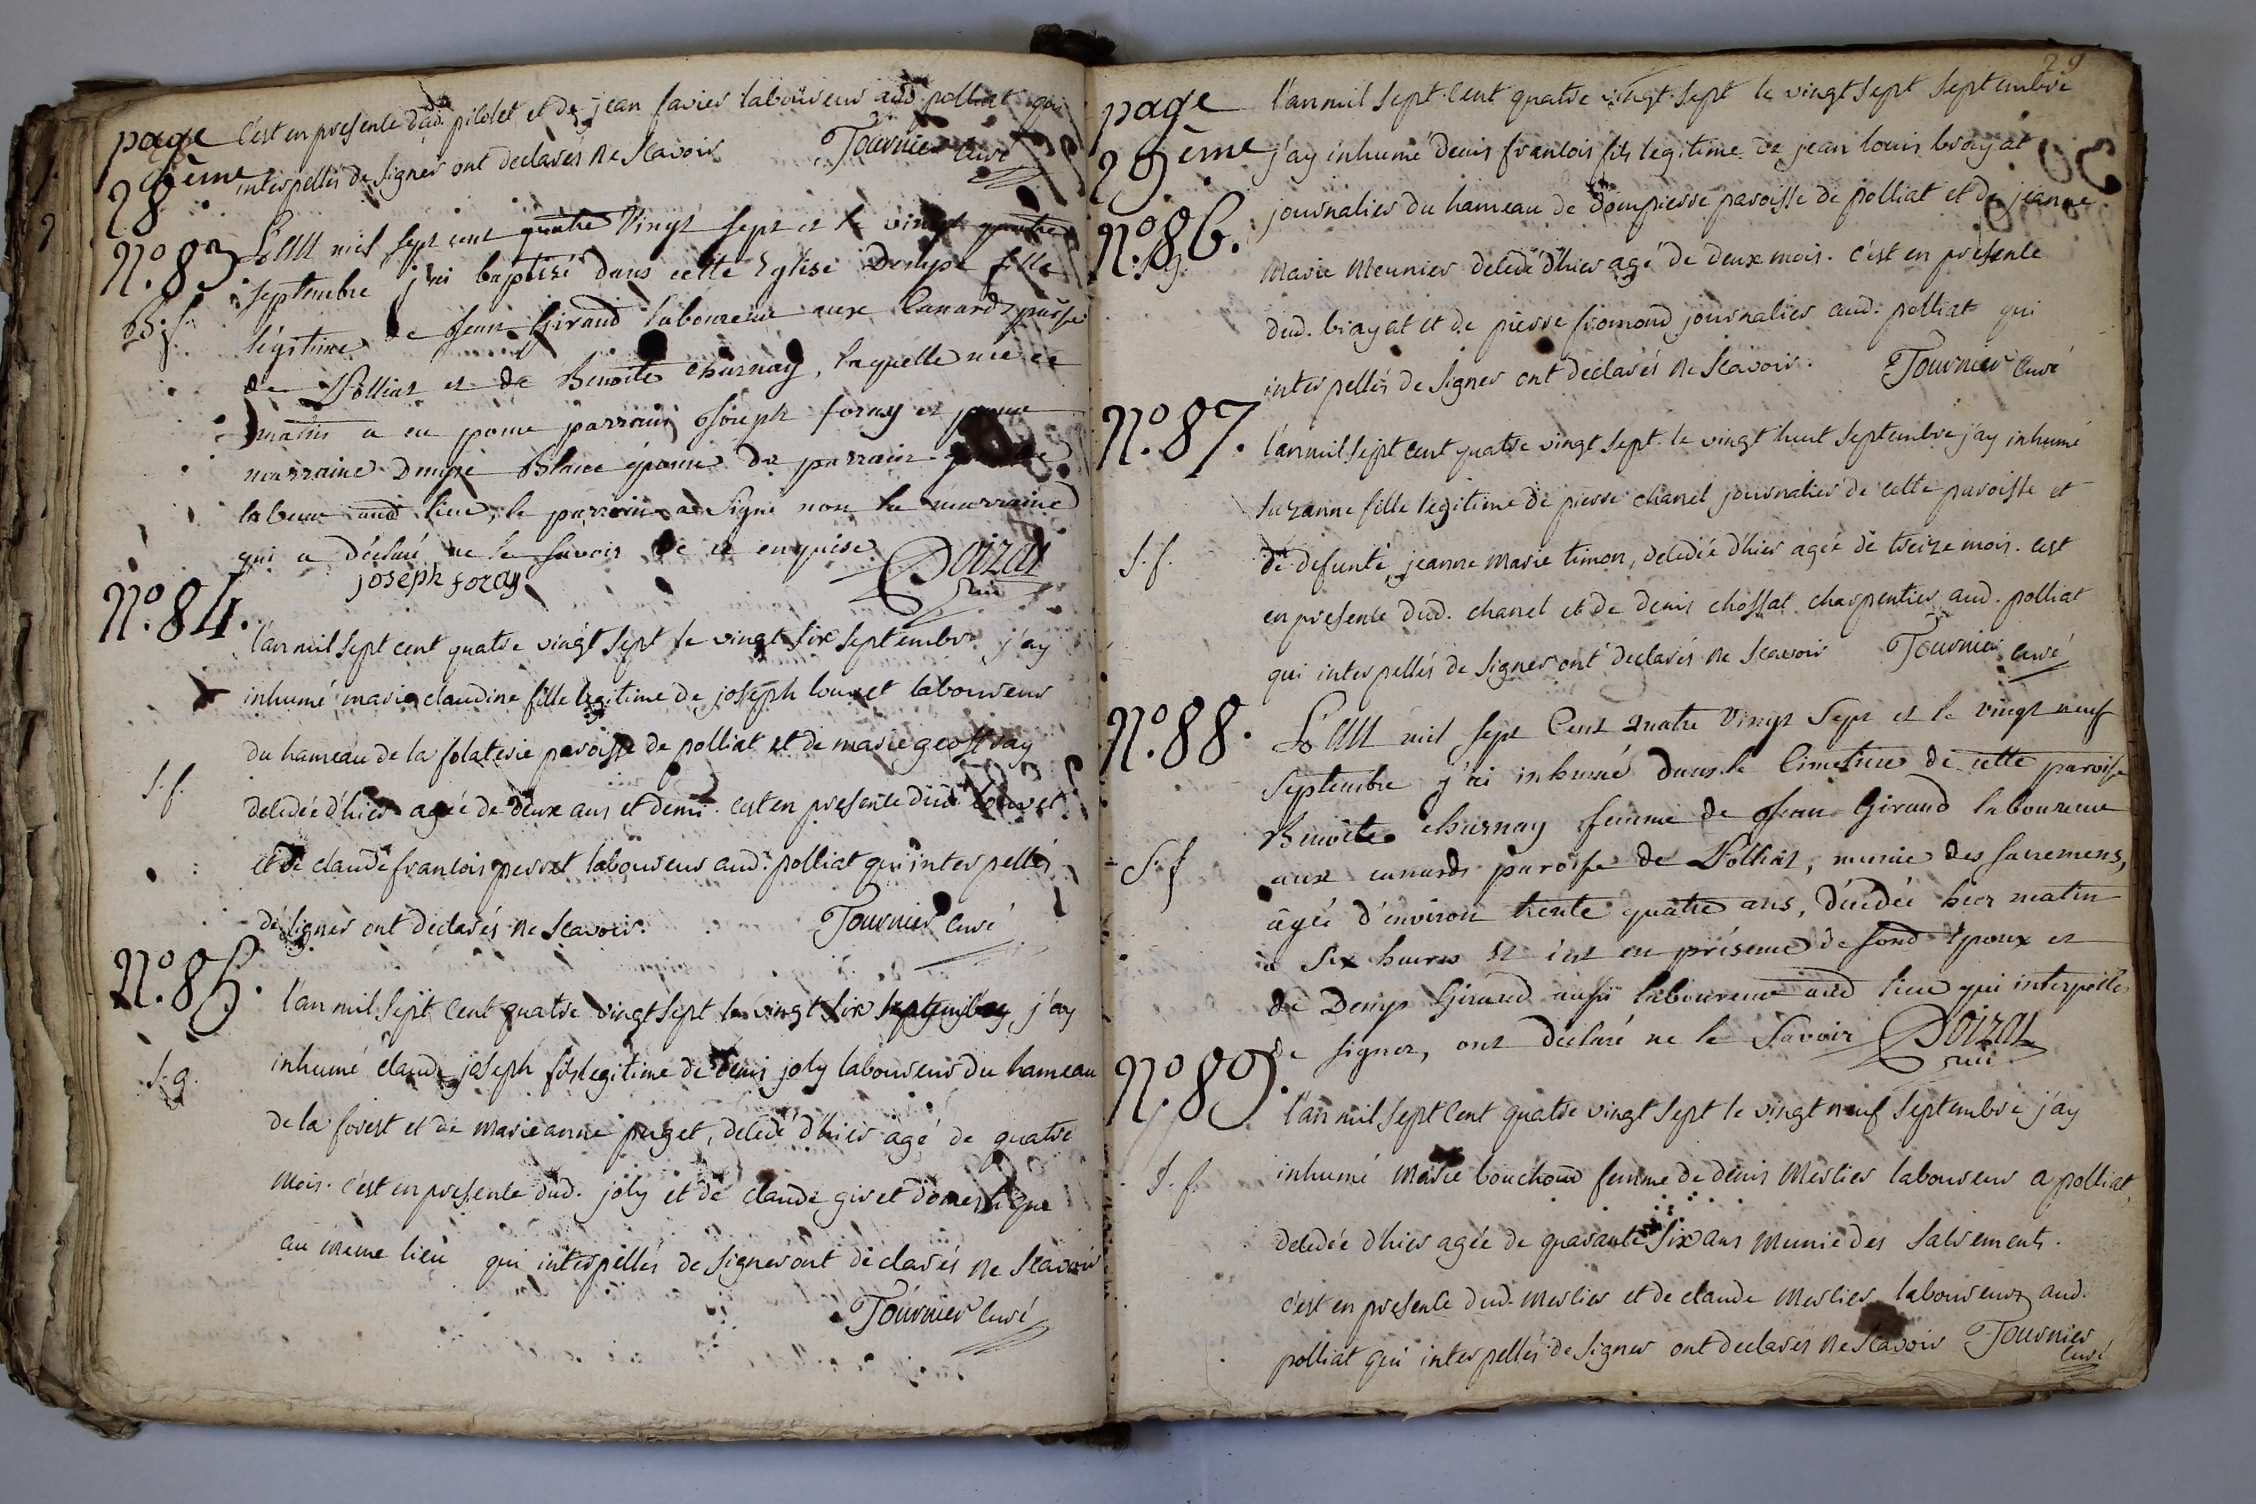 page
28ème
c'est en presence dud. pilolet et de jean favier laboureur aud. polliat qui
interpellés de signer ont declarés ne scavoir Tournier curé
N.° 83
B. f.
L'an mil sept cent quatre vingt sept et le vingt quatre
septembre j'ai baptisé dans cette Eglise Denyse fille
légitime de Jean Giraud laboureur aux Canards parsse
de Polliat et de Benoite Charnay, laquelle née ce
matin a eu pour parrain Joseph foray et pour
marraine Denyse Blanc épouse du parrain
labour aud lieu, le parrain a signé non la marraine
qui a déclaré ne le savoir de ce enquise
joseph foray Doizat curé
N.° 84.
S. f.
l'an mil sept cent quatre vingt sept le vingt six septembre j'ay
inhumé marie claudine fille legitime de joseph louvet laboureur
du hameau de la folaterie paroisse de polliat et de marie geoffray
decedée d'hier agée de deux ans et demi. c'est en presence dud louvet
et de claude francois perret laboureur aud. polliat qui interpellés
de signer ont declarés ne scavoir. Tournier curé
N.° 85.
S. g.
l'an mil sept cent quatre vingt sept le vingt six septembre j'ay
inhumé claude joseph fils legitime de denis joly laboureur du hameau
de la forest et de marie anne puget, decedé d'hier agé de quatre
mois. c'est en presence dud. joly et de claude giret domestique
au meme lieu qui interpellés de signer ont declarés ne scavoir
Tournier curé
29
page
29ème
N.° 86.
S. g.
l'an mil sept cent quatre vingt sept le vingt sept septembre
j'ay inhumé denis francois fils legitime de jean louis brayat
journalier du hameau de dompierre paroisse de polliat et de jeanne
marie meunier decedé d'hier agé de deux mois. c'est en presence
dud. brayat et de pierre fromond journalier aud. polliat qui
interpellés de signer ont declarés ne scavoir. Tournier curé
N.° 87.
S. f.
l'an mil sept cent quatre vingt sept le vingt huit septembre j'ay inhumé
suzanne fille legitime de pierre chanel journalier de cette paroisse et
de defunte jeanne marie timon, decedée d'hier agée de treize mois. c'est
en presence dud. chanel et de denis chossat charpentier aud. polliat
qui interpellés de signer ont declarés ne scavoir Tournier curé
N.° 88.
S. f
L'an mil sept Cent quatre vingt sept et le vingt neuf
septembre j'ai inhumé dans le Cimetiere de cette paroisse
Benoite charnay femme de Jean Giraud laboureur
aux canards paroisse de Polliat, munie des sacremens,
agée d'environ trente quatre ans, décédée hier matin
a six heures et c'est en présence de sond Epoux et
de Denys Giraud aussi laboureur aud lieu qui interpellés
de signer, ont déclaré ne le savoir Doizat
curé
N.° 89.
S. f.
l'an mil sept cent quatre vingt sept le vingt neuf septembre j'ay
inhumé marie bouchoud femme de denis merlier laboureur a polliat,
decedée d'hier agée de quarante six ans munie des sacrements.
c'est en presence dud. merlier et de claude merlier laboureurs aud.
polliat qui interpellés de signer ont declarés ne scavoir Tournier
curé